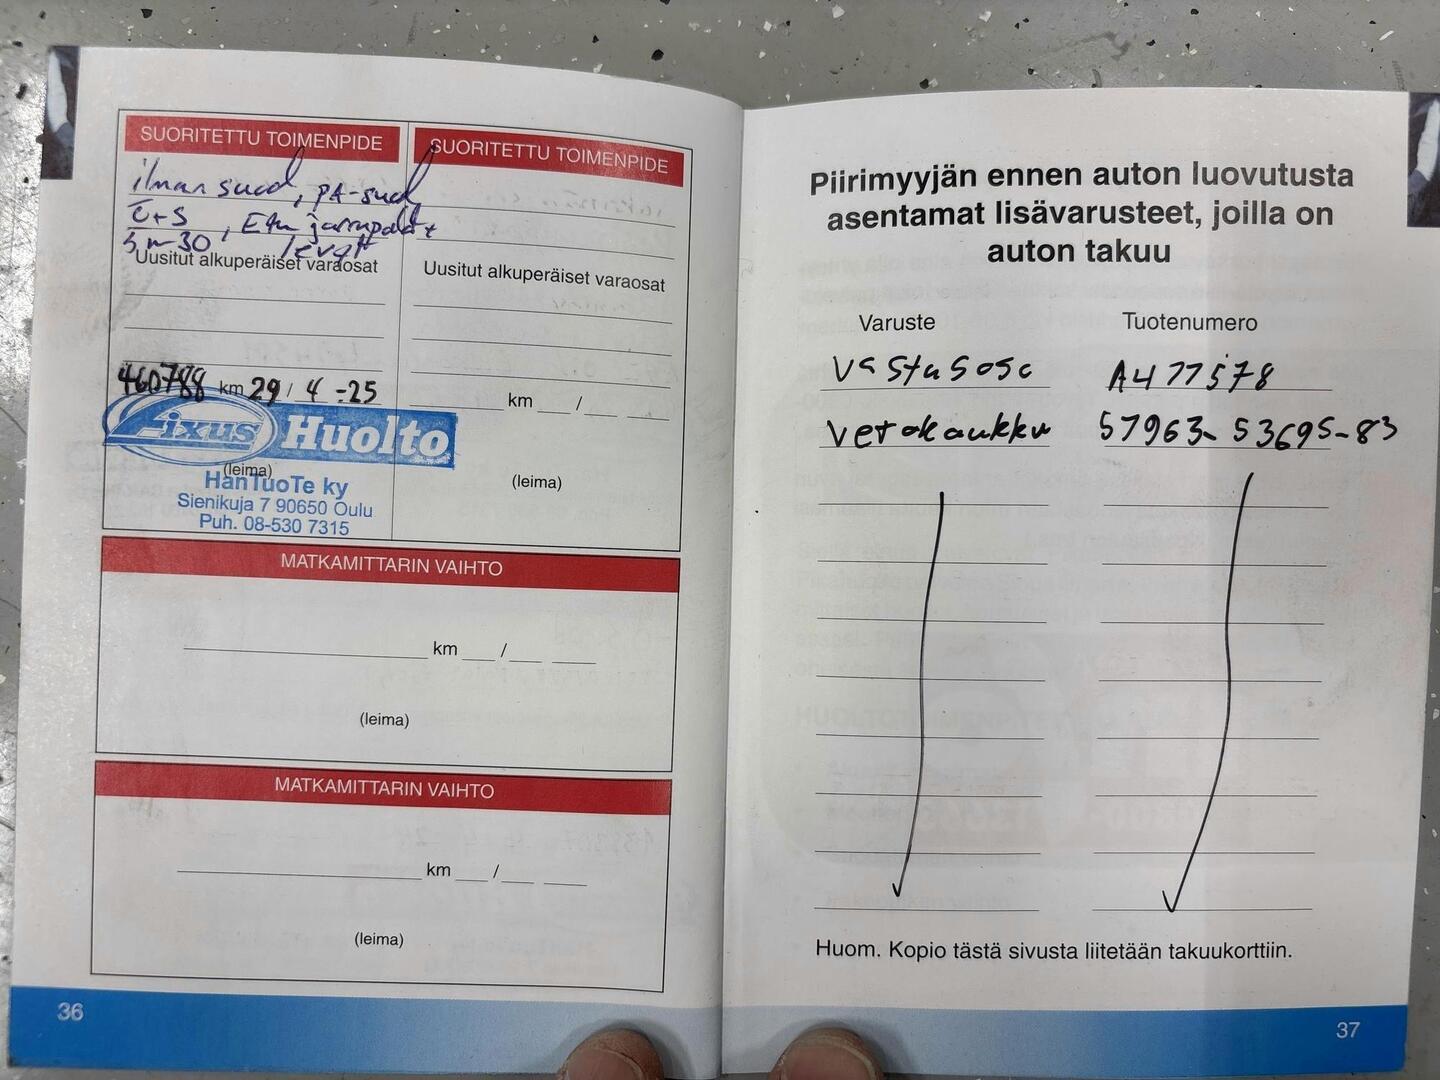 SUORITETTU TOIMENPIDE
ilman suod, PA-suod
Ö+S, Etu jarrupalat +
5w30 levyt
Uusitut alkuperäiset varaosat
460788 km 29 / 4 -25
Fixus Huolto
(leima)
HanTuoTe ky
Sienikuja 7 90650 Oulu
Puh. 08-530 7315
SUORITETTU TOIMENPIDE
Uusitut alkuperäiset varaosat
km /
(leima)
MATKAMITTARIN VAIHTO
km /
(leima)
MATKAMITTARIN VAIHTO
km /
(leima)
36
Piirimyyjän ennen auton luovutusta
asentamat lisävarusteet, joilla on
auton takuu
Varuste Tuotenumero
Vastusosa A477578
Verokaukku 57963-53695-83
Huom. Kopio tästä sivusta liitetään takuukorttiin.
37